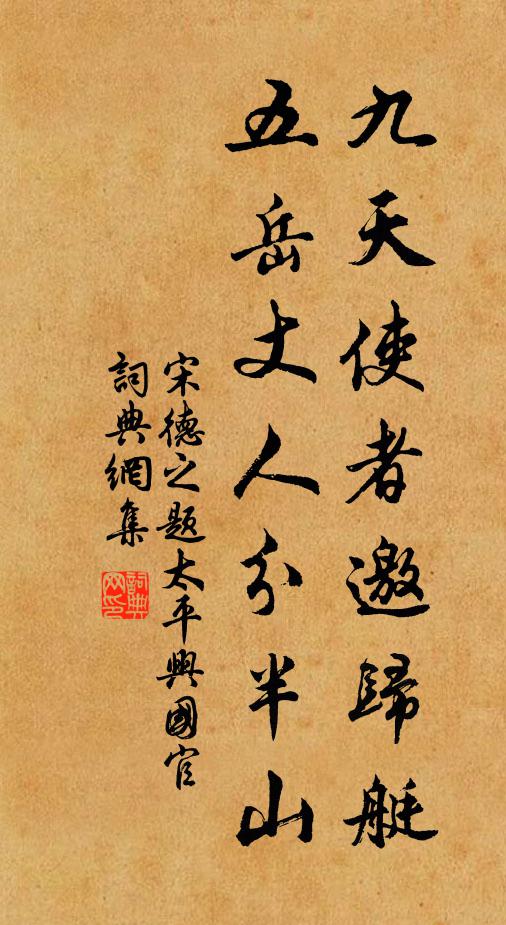 九天使者邀歸艇
五岳丈人分半山
宋德之題太平興國官
詞典網集
詞典网印